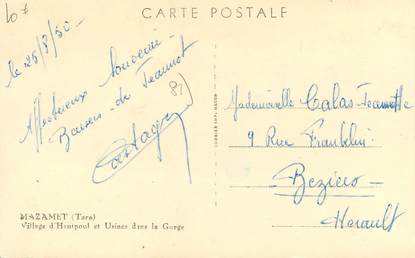 10 €
CARTE POSTALE
le 25/8/50-
Affectueux Souvenir
Baisers de Jeannot
81
Mademoiselle Calas Jeannette
9 Rue Franklin
Beziers
Herault
MAZAMET (Tarn)
Village d'Hautpoul et Usines dans la Gorge